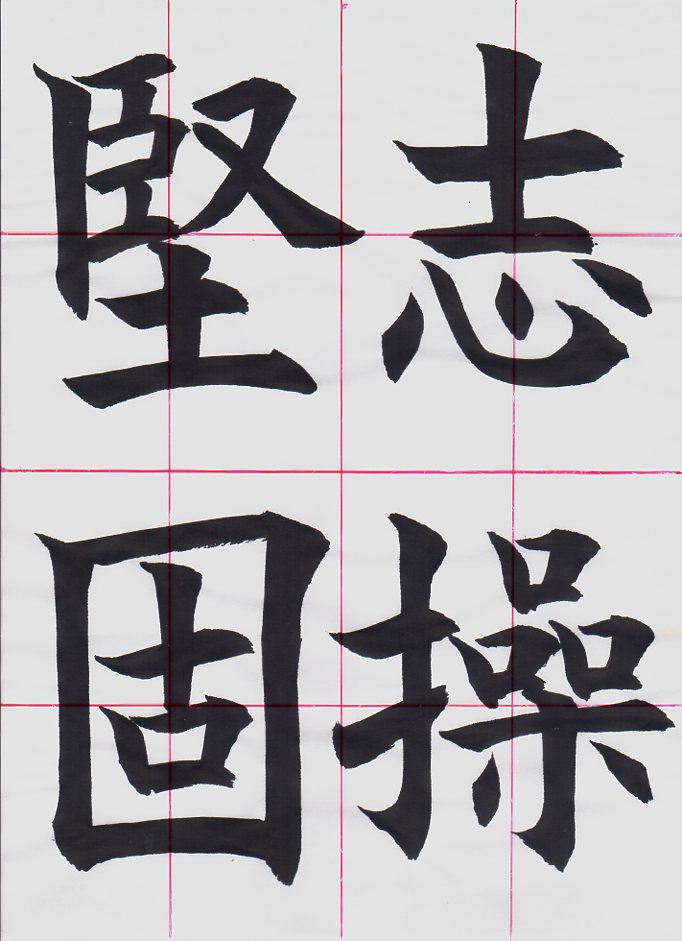 志操
堅固